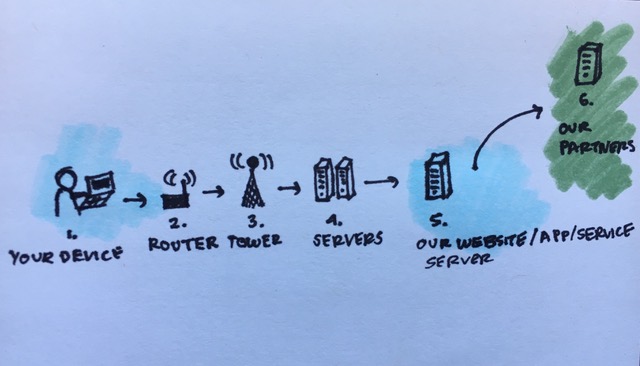 1.
YOUR DEVICE
2.
ROUTER
3.
TOWER
4.
SERVERS
5.
OUR WEBSITE/APP/SERVICE
SERVER
6.
OUR
PARTNERS